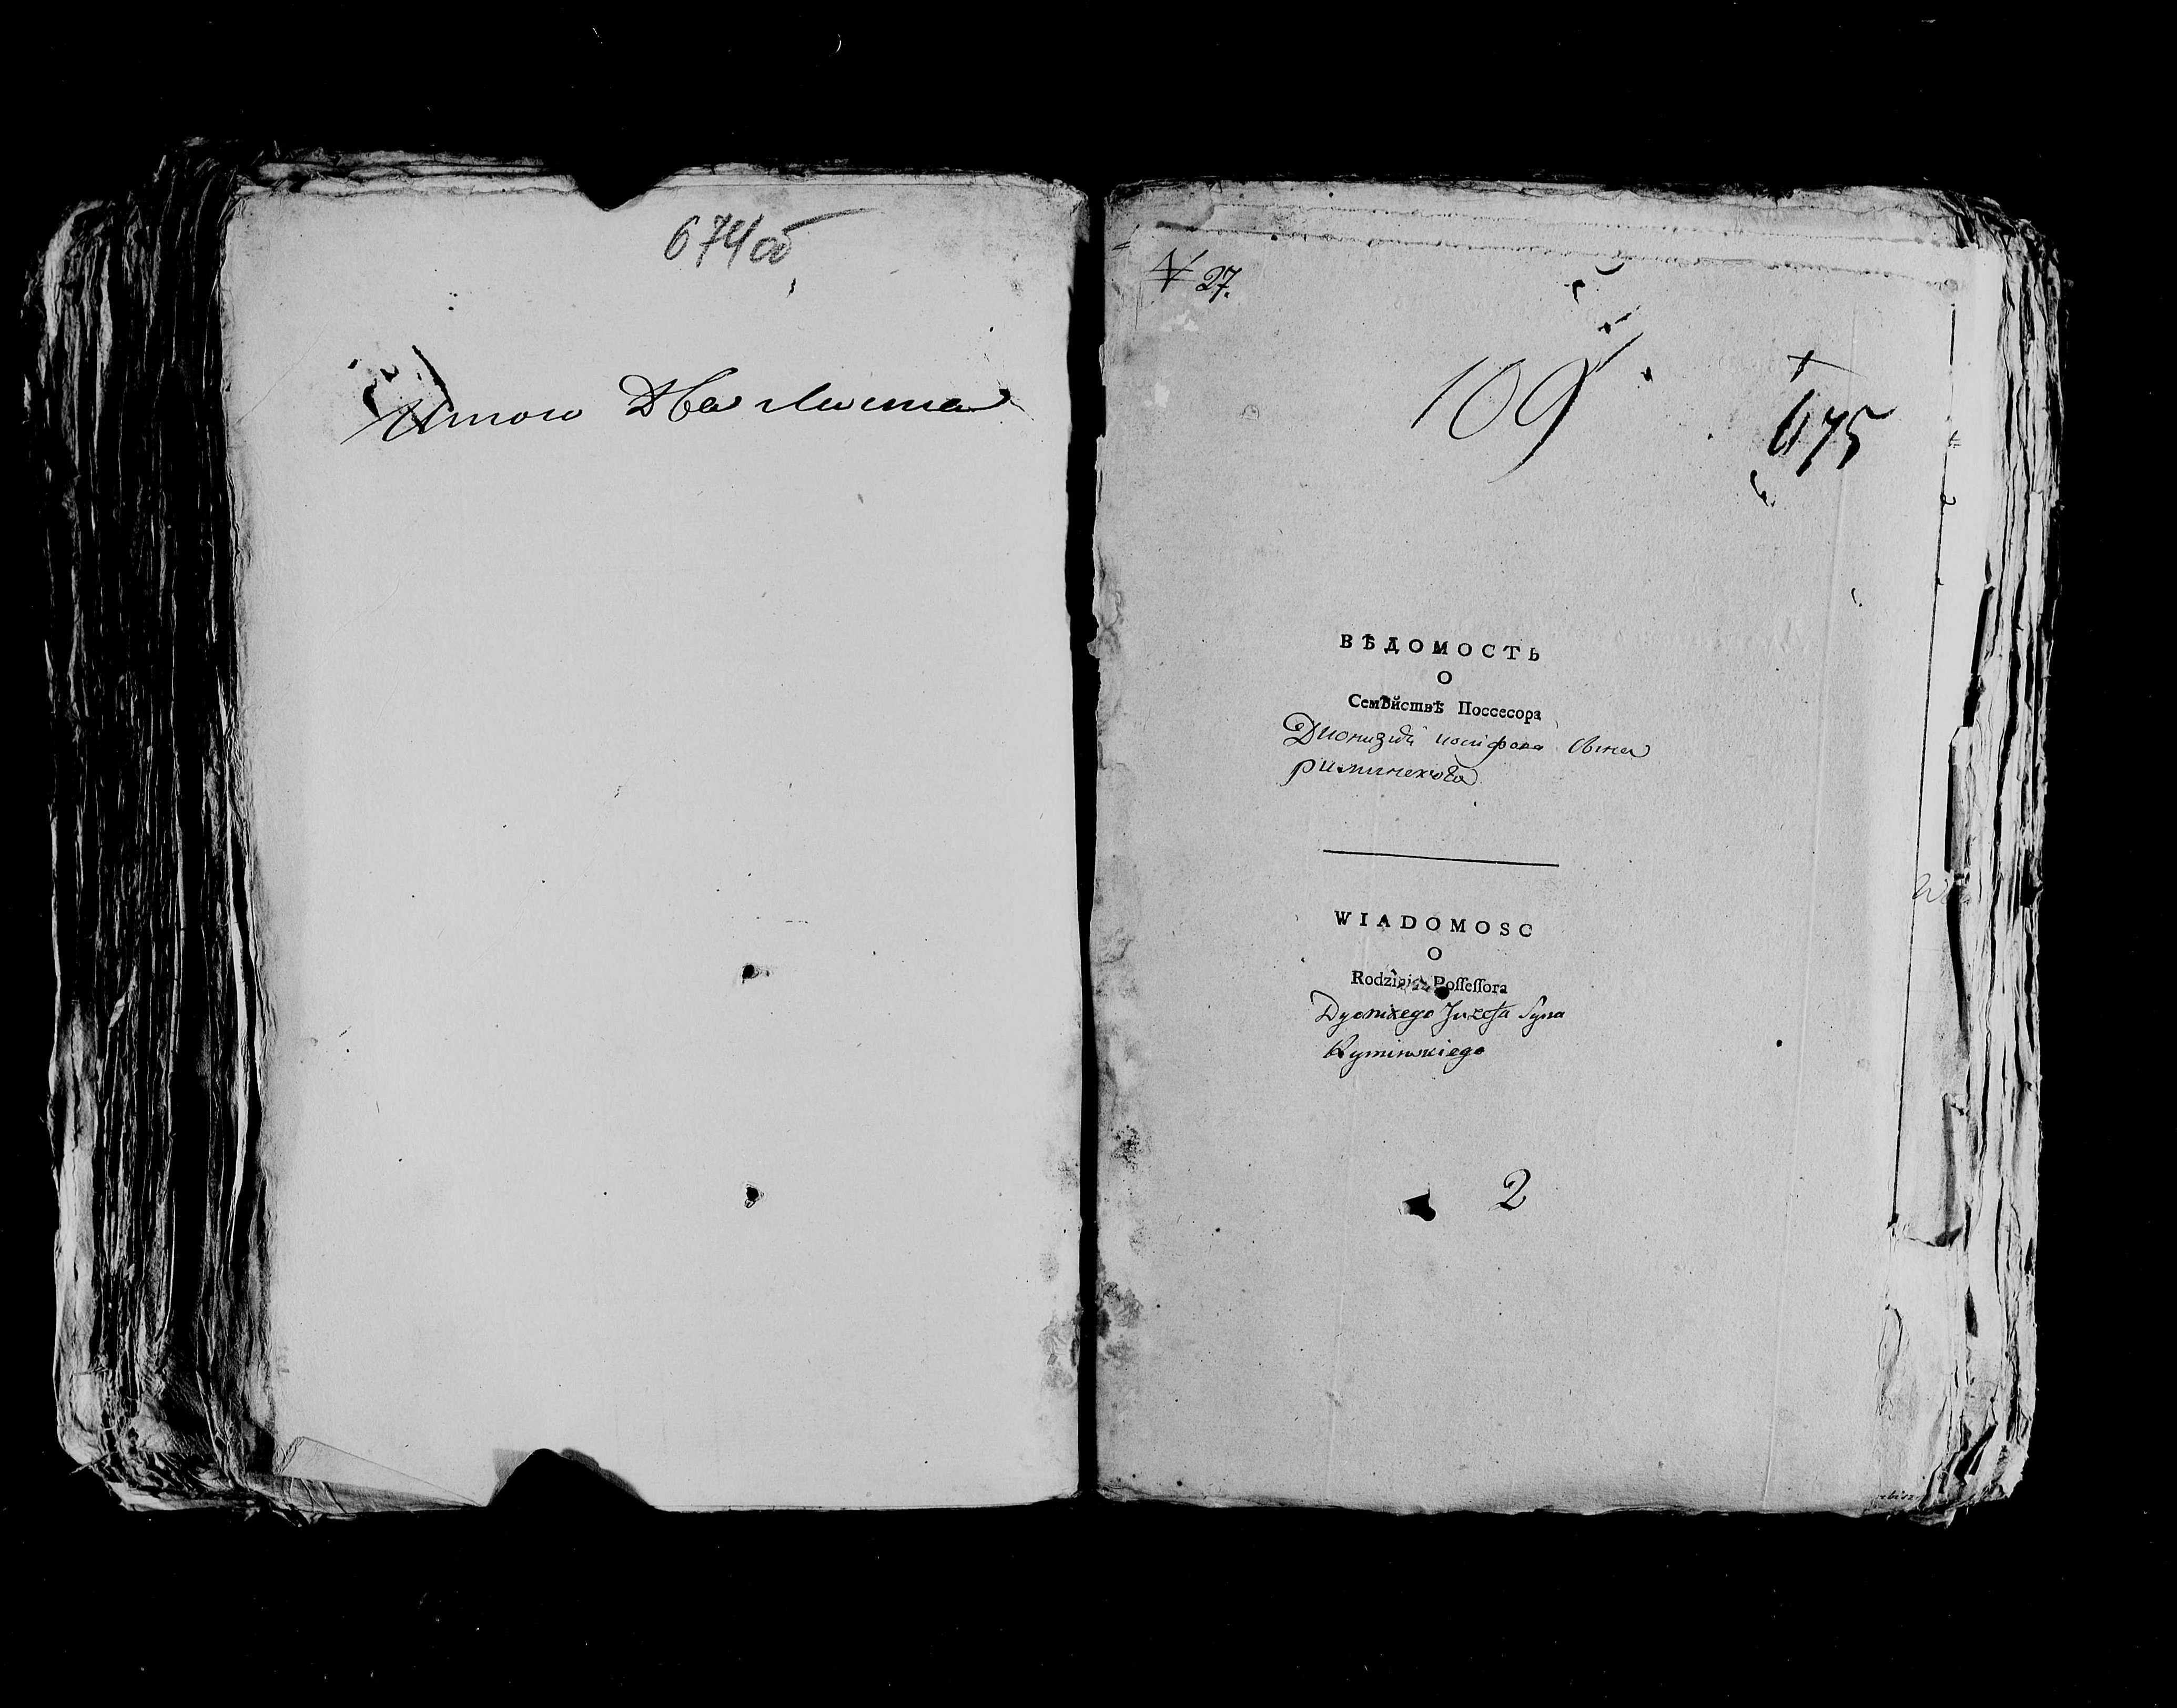 674об
Итого Два Листа
№ 27.
109
675
ВѢДОМОСТЬ
О
Семѣйствѣ Поссесора
Дионизий иосифова Сына
Риминскова
WIADOMOSC
O
Rodzinie Poſſeſſora
Dyonizego Juzefa Syna
Ryminskiego
2